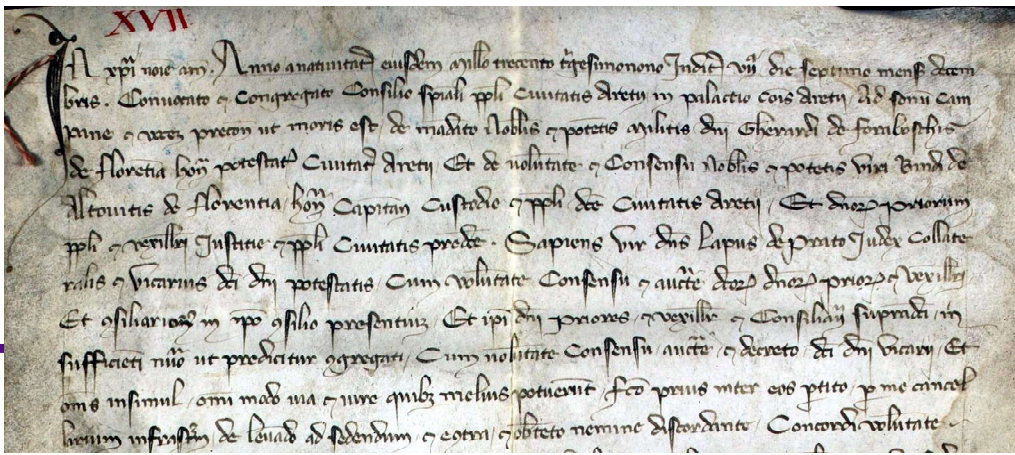 XVII
In xpi noie am. Anno a nativitate eiusdem millo trecento trigesimonono Indict. VII die septimo mensis decem
bris. Convocato et Congregato Consilio spiali ppli Civitatis Aretii in palactio cois Aretii, Ad sonu cam
pane et vocez precon ut moris est, de madato Nobilis et potetis militis dni Gherardi de fornboschis
de floretia hon potestat Civitat Aretii Et de volutate et Consensu Nobilis et potetis viri Bindi de
Altovitis de florentia, hon Capitan Custodie et ppli dce Civitatis Aretii, Et dnoz priorum
ppli et vexillri Justitie et ppli Civitatis predce. Sapiens vir dns Lapus de Prato Judex Collate
ralis et vicarius dci dni potestatis Cum volutate Consensu et aucte dcoz dnoz prioz et vexillri
Et 9siliarioz in ipo 9silio presentiuz, Et ipi dni priores et vexillr et Consiliarii supradci, in
sufficieti nuo ut predicitur 9gregati, Cum volutate Consensu aucte et decreto dci dni vicarii, Et
ois insimul, oi modo via et iure quibz melius potuerunt, fco prius inter eos ptito, p me cancel
larium infrasptm de levado ad sedendum, et eotra, et obteto nemine discordante, Concordi volutate